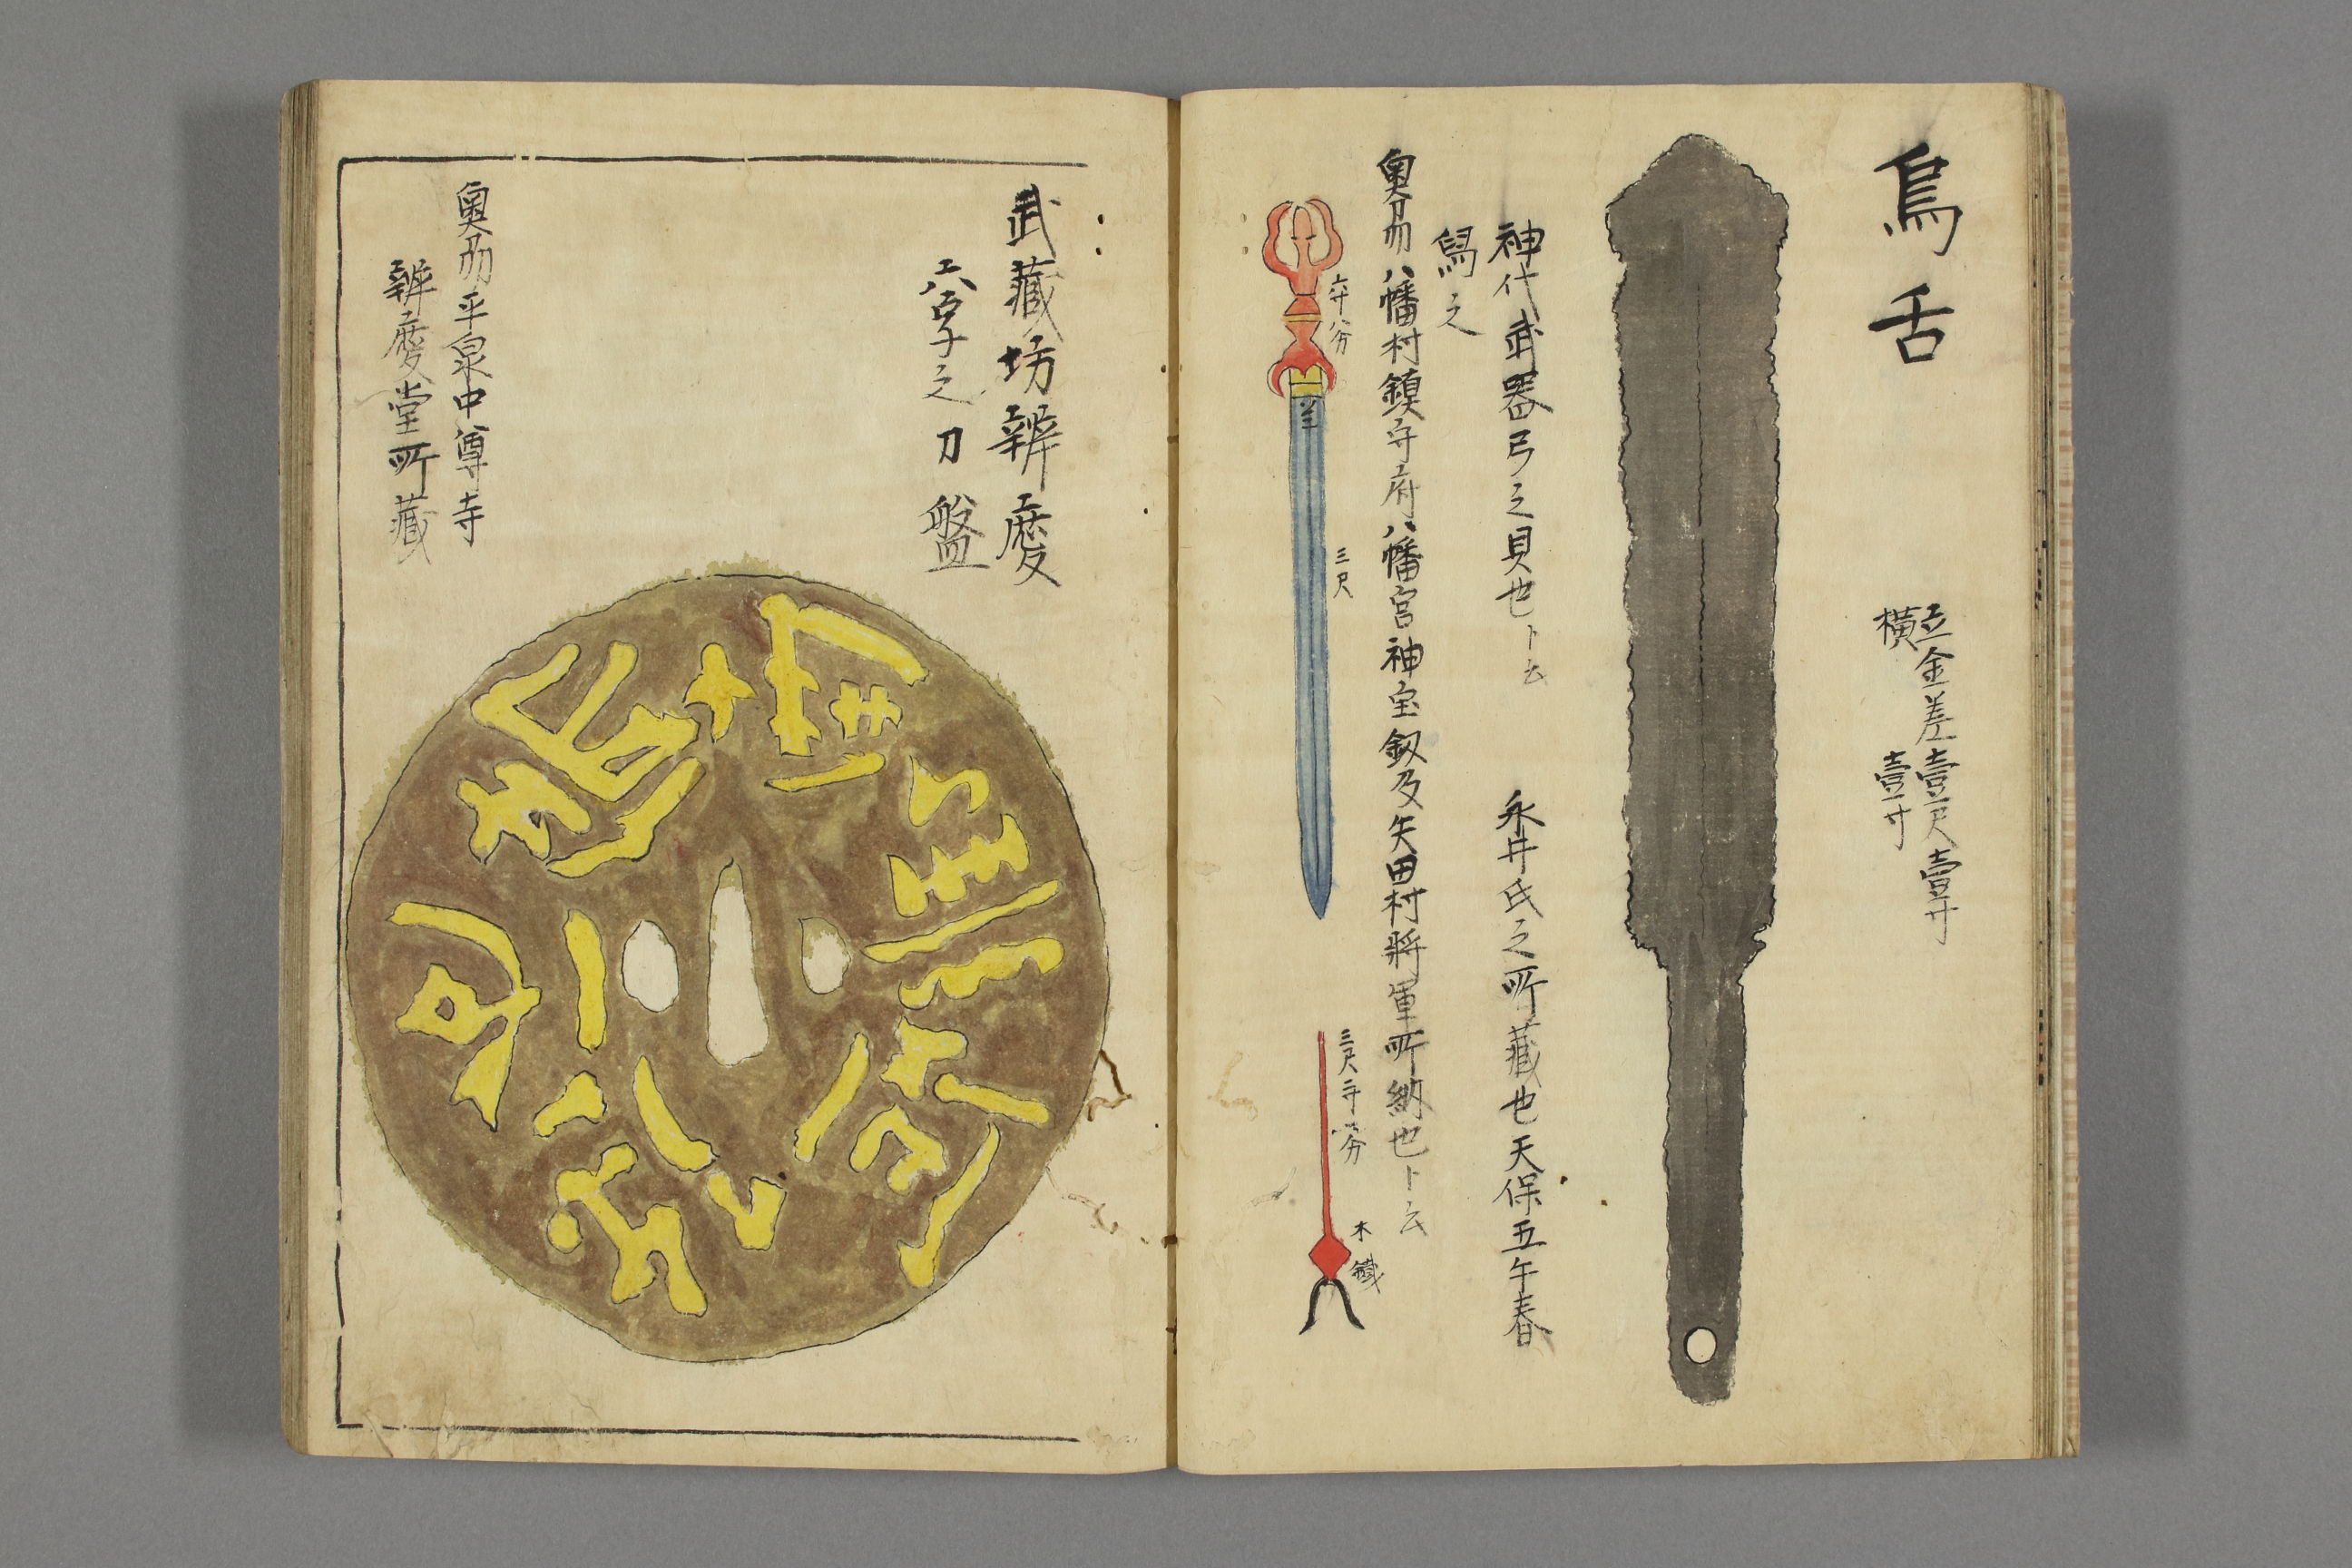 烏舌
立金差壹尺壹寸
横　　壹寸
神代武器弓之貝也ト云　永井氏之所藏也天保五午春
冩之
奥刕八幡村鎮守府八幡宮神宝釼及矢田村將軍所納也ト云
六寸八分
三尺
三尺二寸
木
鐵
武藏坊辨慶
六字之刀盤
奥刕平泉中尊寺
辨慶堂所藏